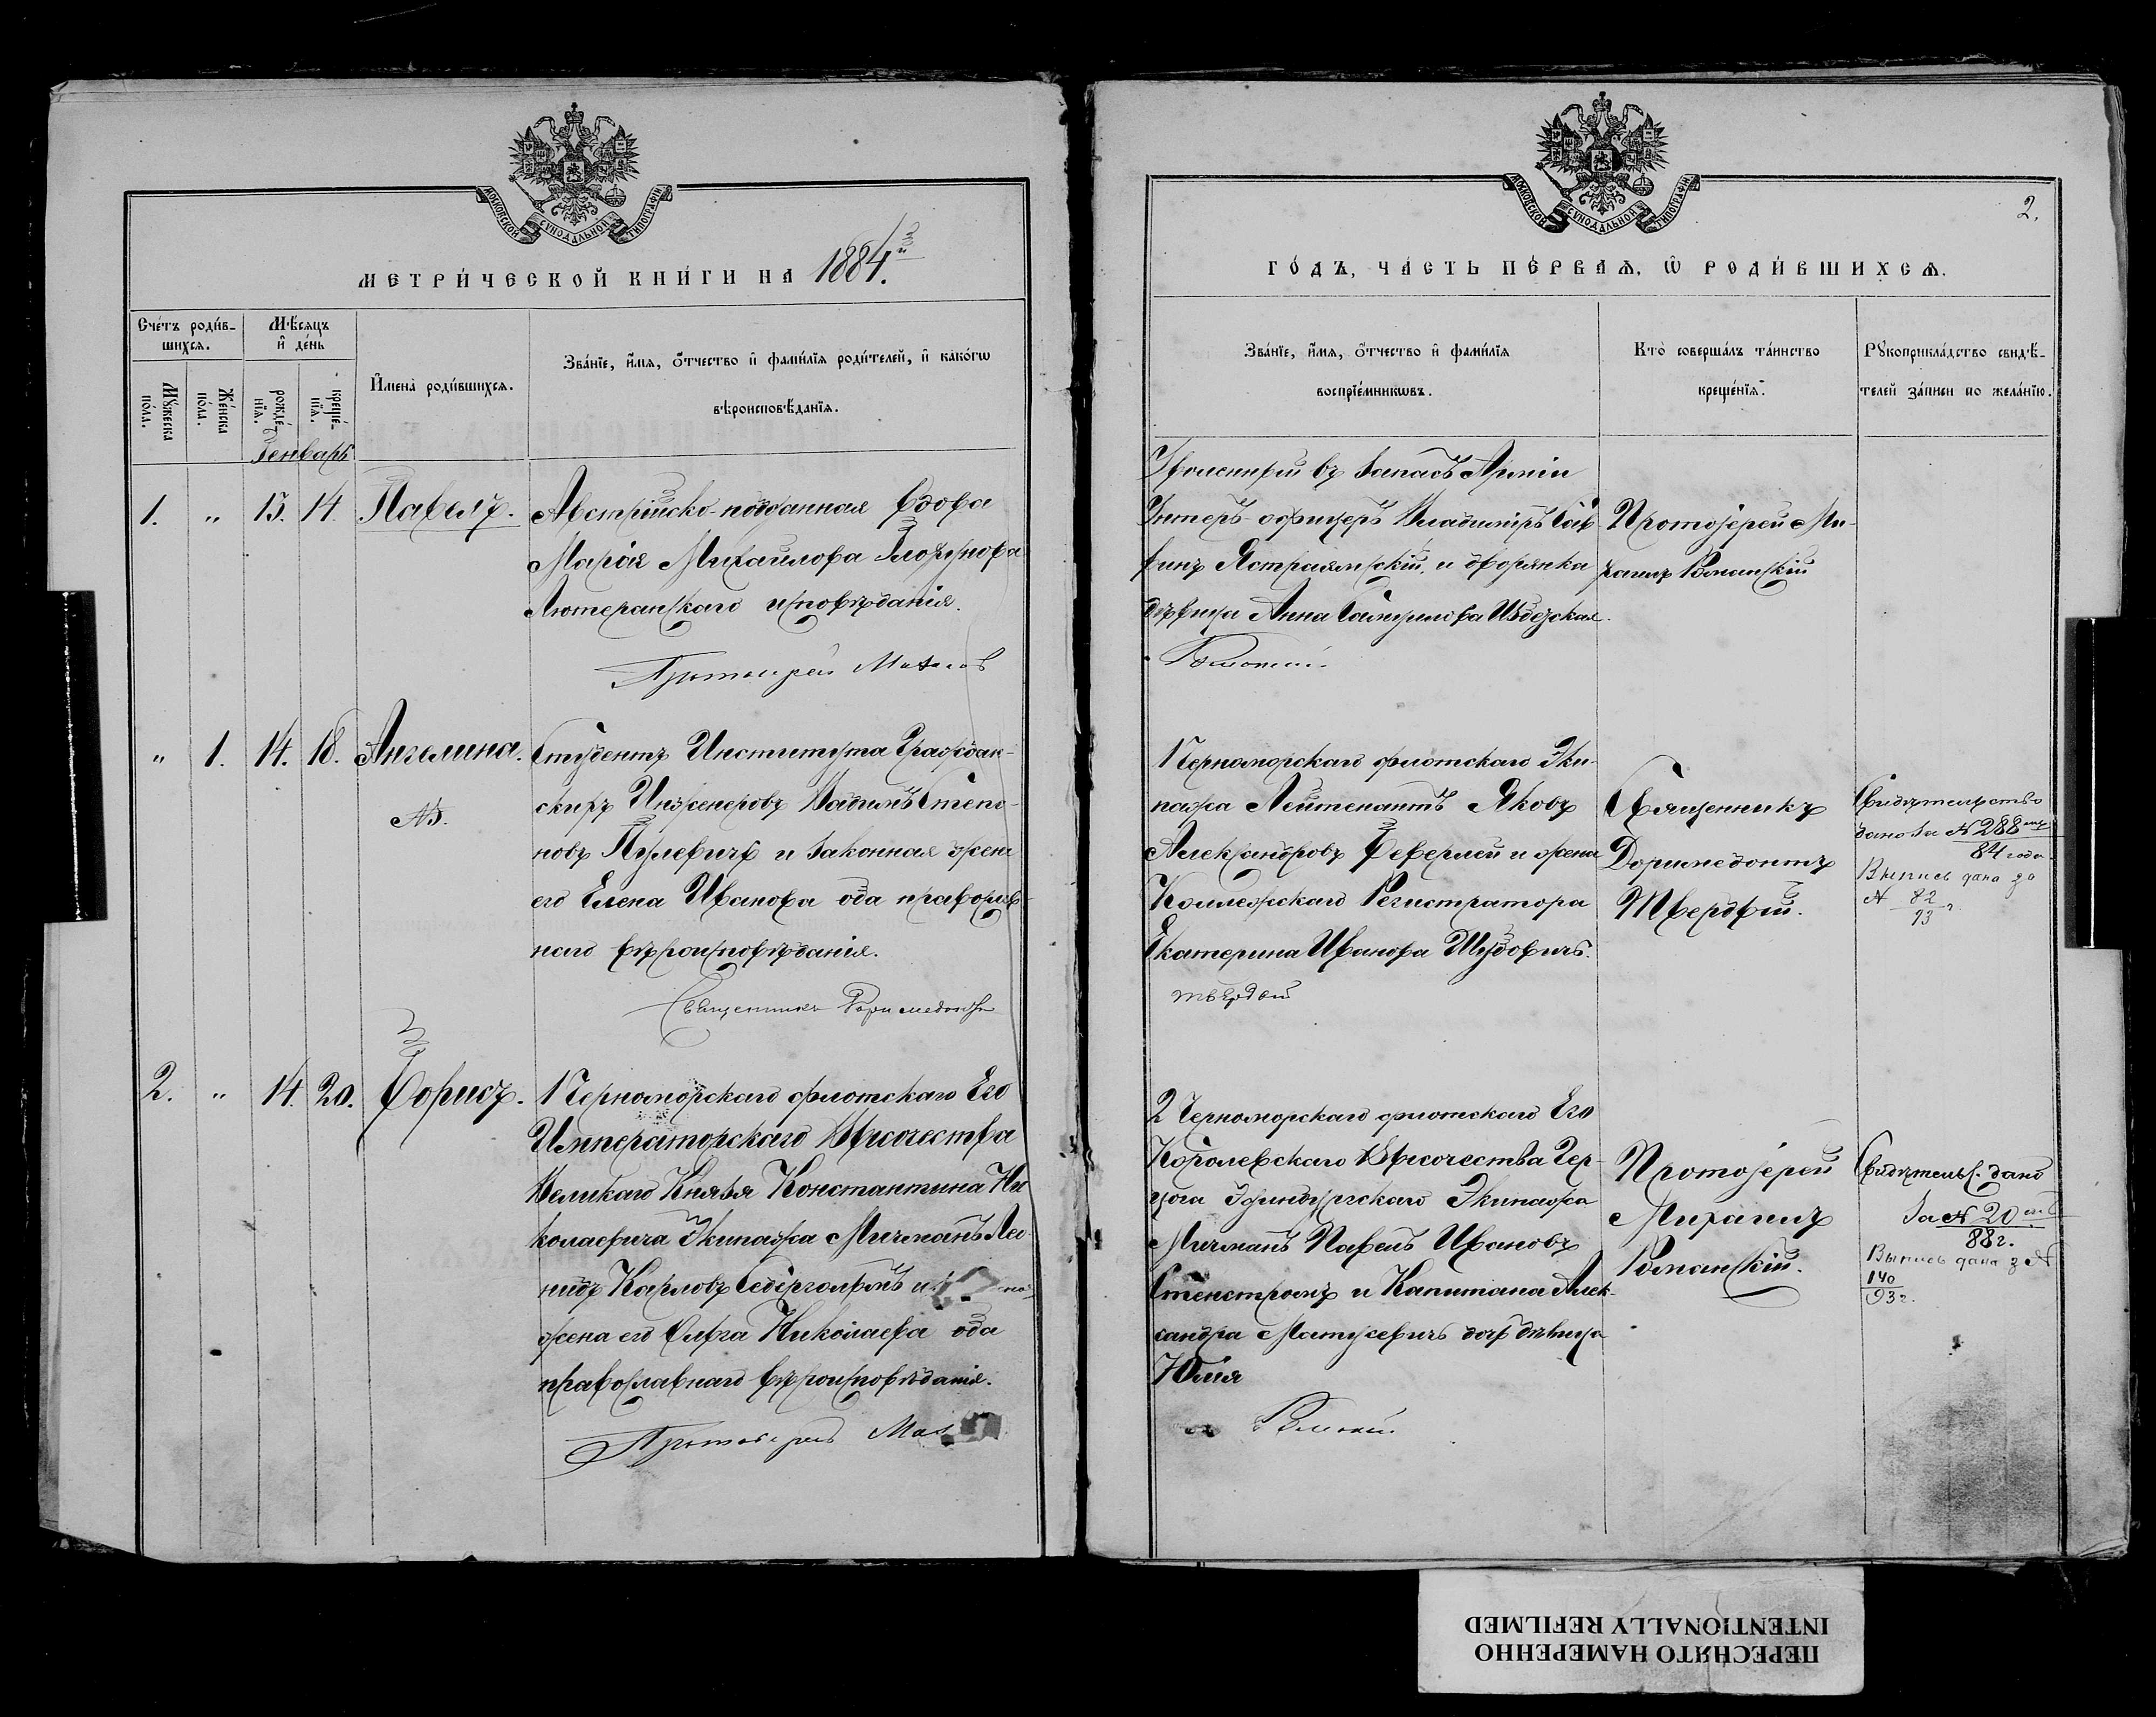 МОСКОВСКОЙ СѴНОДАЛЬНОЙ ТИПОГРАФІИ
МЕТРИ́ЧЕСКОЙ КНИ́ГИ НА 1884.й
Сче́тъ роди́в-
шихсѧ.
Мѣ́сяцъ
и҆ де́нь
Мꙋ́жеска
по́ла.
Же́нска
по́ла.
рожде́-
нїѧ.
креще́-
нїѧ.
И҆мена̀ роди́вшихсѧ.
Зва́нїе, и҆́мѧ, ѻ҆́тчество и҆ фами́лїѧ роди́телей, и҆ како́гѡ
вѣроисповѣ́данїѧ.
Генварь
1. " 13. 14. Павелъ.
Австрійско-подданная вдова
Марія Михайлова
Лютеранскаго исповѣданія.
Протоіерей
" 1. 14. 18. Ангелина.
№.
Студентъ Института Граждан-
скихъ Инженеровъ Вадимъ Степа-
новъ и законная жена
его Елена Иванова оба православ-
наго вѣроисповѣданія.
Священникъ Доримедонтъ
2. " 14. 20. Борисъ.
1 Черноморскаго флотскаго Его
Императорскаго Высочества
Великаго Князя Константина Ни-
колаевича Экипажа Мичманъ Лео-
нидъ Карловъ и
жена его Ольга Николаева оба
православнаго вѣроисповѣданія.
Протоіерей
МОСКОВСКОЙ СѴНОДАЛЬНОЙ ТИПОГРАФІИ
2.
ГО́ДЪ, ЧА́СТЬ ПЕ́РВАѦ, Ѽ РОДИ́ВШИХСѦ.
Зва́нїе, и҆́мѧ, ѻ҆́тчество и҆ фами́лїѧ
воспрїе́мникѡвъ.
Кто̀ соверша́лъ та́инство
креще́нїѧ.
Рꙋкоприкла́дство свидѣ́-
телей за́писи по жела́нїю.
Уволенный въ запасъ Арміи
Унтеръ-офицеръ Владиміръ Сав-
винъ Ястржемскій, и дворянка
дѣвица Анна
Протоіерей Ми-
хаилъ Романскій
1 Черноморскаго флотскаго Эки-
пажа Лейтенантъ Яковъ
Александровъ и жена
Коллежскаго Регистратора
Екатерина Иванова
Твердый
Священникъ
Доримедонтъ
Твердый.
Свидѣтельство
дано за № 288
84 года
Выпись дана за
№ 82
93 г.
2 Черноморскаго флотскаго Его
Королевскаго Высочества Гер-
цога Эдинбургскаго Экипажа
Мичманъ Павелъ Ивановъ
Стенстремъ и Капитана Алек-
сандра Матусевичъ дочь дѣвица
Юлія
Протоіерей
Михаилъ
Романскій.
Свидѣтельс. дано
за № 20
88 г.
Выпись дана з №
140
93 г.
ПЕРЕСНЯТО НАМЕРЕННО
INTENTIONALLY REFILMED